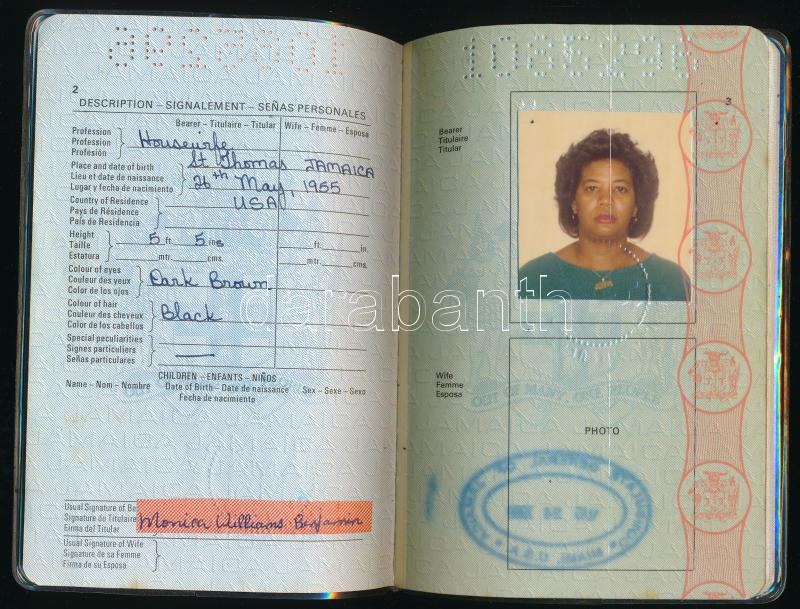 1086296
2
DESCRIPTION – SIGNALEMENT – SEÑAS PERSONALES
Bearer – Titulaire – Titular
Wife – Femme – Esposa
Profession
Profession
Profesión
Housewife
Place and date of birth
Lieu et date de naissance
Lugar y fecha de nacimiento
St Thomas JAMAICA
26th May, 1955
Country of Residence
Pays de Résidence
País de Residencia
USA
Height
Taille
Estatura
5 ft. 5 ins
ft. in.
mtr. cms.
mtr. cms.
Colour of eyes
Couleur des yeux
Color de los ojos
Dark Brown
Colour of hair
Couleur des cheveux
Color de los cabellos
Black
Special peculiarities
Signes particuliers
Señas particulares
CHILDREN – ENFANTS – NIÑOS
Name – Nom – Nombre
Date of Birth – Date de naissance
Fecha de nacimiento
Sex – Sexe – Sexo
Usual Signature of Be
Signature du Titulaire
Firma del Titular
Monica Williams Benjamin
Usual Signature of Wife
Signature de sa Femme
Firma de su Esposa
1086296
3
Bearer
Titulaire
Titular
Wife
Femme
Esposa
OUT OF MANY, ONE PEOPLE
PHOTO
CONSULATE GENERAL OF JAMAICA
MIAMI U.S.A.
JAMAICA JAMAICA JAMAICA
darabanth